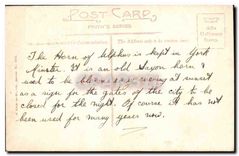 POST CARD
The Horn of Ulphus is kept in York
Minster. It is an old Saxon horn &
used to be blown every evening at sunset
as a sign for the gates of the city to be
closed for the night. Of course it has not
been used for many years now.